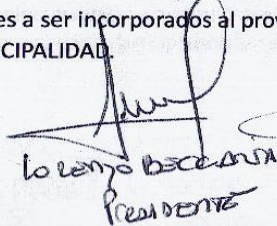 es a ser incorporados al prov
CIPALIDAD.
LORENZO
PRESIDENTE